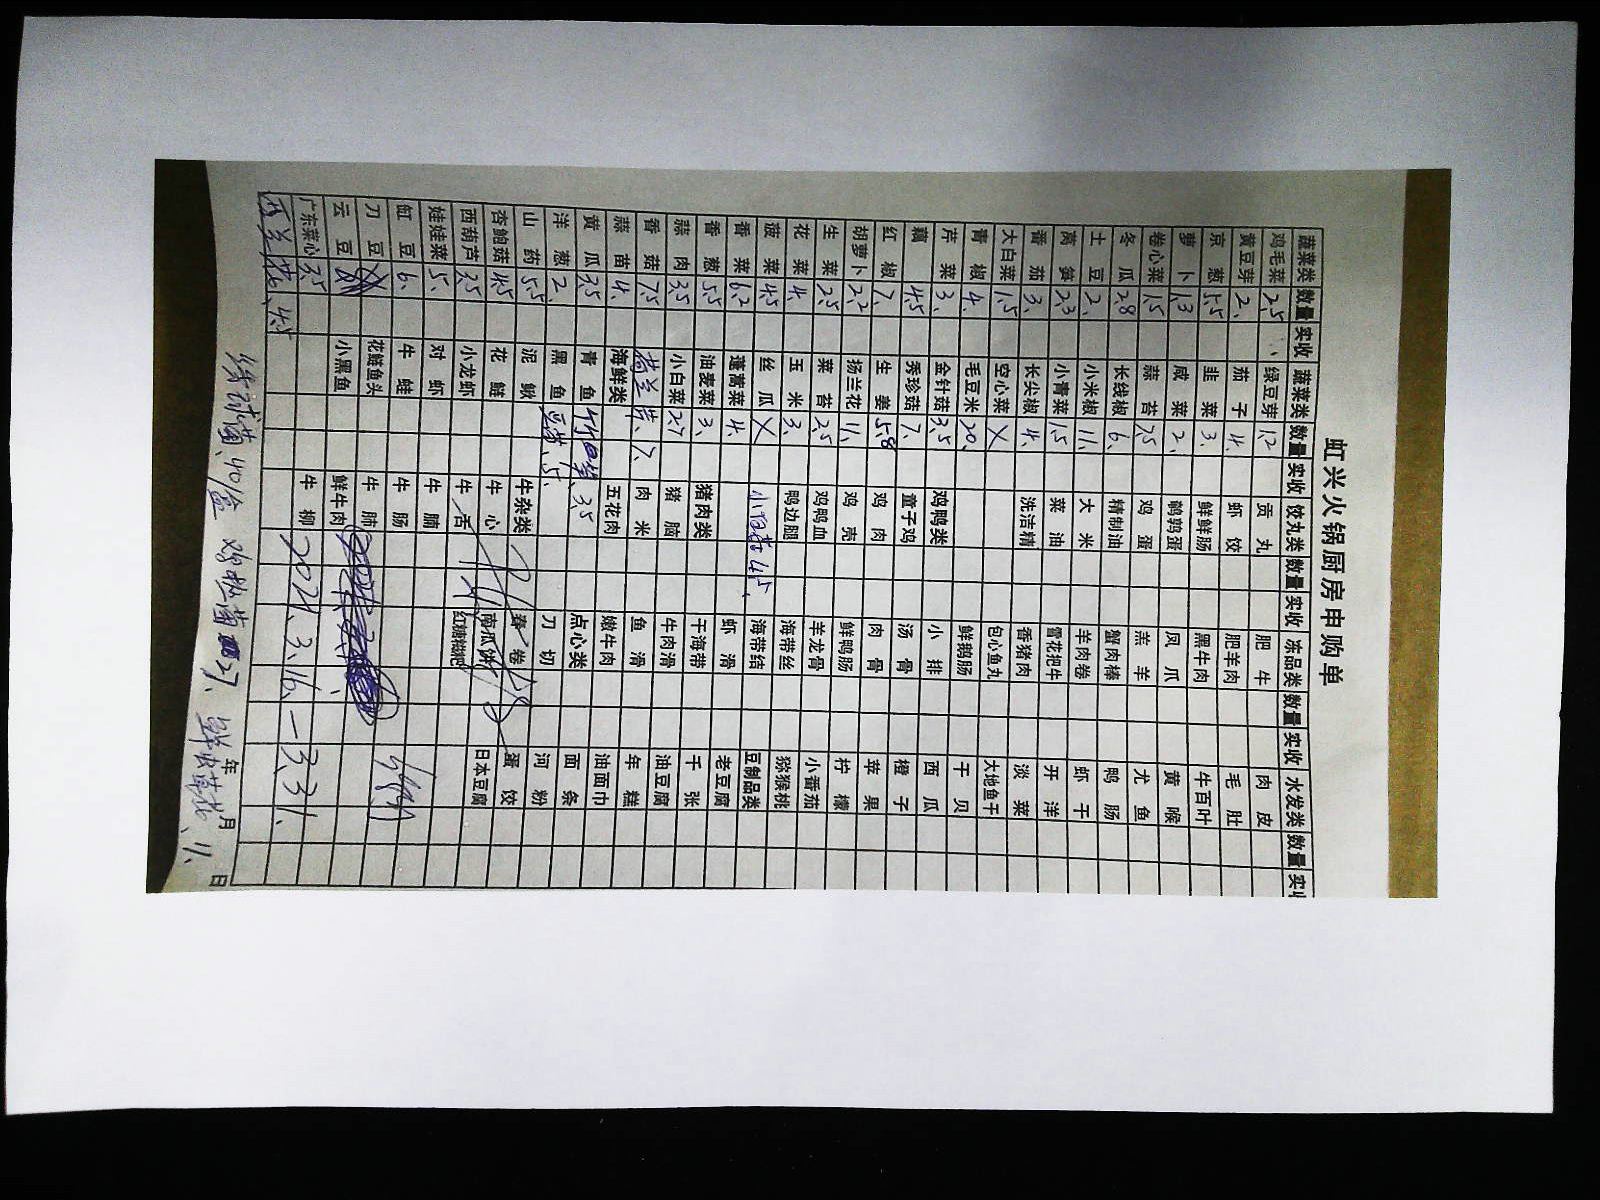 虹兴火锅厨房申购单
蔬菜类 数量 实收 蔬菜类 数量 实收 饺丸类 数量 实收 冻品类 数量 实收 水发类 数量 实收
鸡毛菜 2.5 绿豆芽 1.2 贡丸 肥牛 肉皮
黄豆芽 2、 茄子 4、 虾饺 肥羊肉 毛肚
京葱 5.5 韭菜 3、 鲜鲜肠 黑牛肉 牛百叶
萝卜 1.3 咸菜 2、 鹌鹑蛋 凤爪 黄喉
卷心菜 1.5 蒜苔 7.5 鸡蛋 羔羊 尤鱼
冬瓜 2.8 长线椒 6、 精制油 蟹肉棒 鸭肠
土豆 2、 小米椒 11、 大米 羊肉卷 虾干
莴笋 2.3 小青菜 1.5 菜油 雪花把牛 开洋
番茄 3、 长尖椒 4、 洗洁精 香猪肉 淡菜
大白菜 1.5 空心菜 X 包心鱼丸 大地鱼干
青椒 4、 毛豆米 20、 鲜鹅肠 干贝
芹菜 3、 金针菇 3.5 鸡鸭类 小排 西瓜
藕 4.5 秀珍菇 7、 童子鸡 汤骨 橙子
红椒 7、 生姜 5.8 鸡肉 肉骨 苹果
胡萝卜 2.2 扬兰花 11、 鸡壳 鲜鸭肠 柠檬
生菜 2.5 菜苔 2.5 鸡鸭血 羊龙骨 小番茄
花菜 4、 玉米 3、 鸭边腿 海带丝 猕猴桃
菠菜 4.5 丝瓜 X 海带结 豆制品类
香菜 6.2 蓬蒿菜 4、 虾滑 老豆腐
香葱 5.5 油麦菜 3、 猪肉类 干海带 千张
蒜肉 3.5 小白菜 2.7 猪脑 牛肉滑 油豆腐
香菇 7.5 荷兰芹、7、 肉米 鱼滑 年糕
蒜苗 4、 海鲜类 五花肉 嫩牛肉 油面巾
黄瓜 3.5 青鱼 3.5 点心类 面条
洋葱 2、 黑鱼 5、 刀切 河粉
山药 5.5 泥鳅 牛杂类 春卷 蛋饺
杏鲍菇 4.5 花鲢 牛心 南瓜饼 日本豆腐
西葫芦 3.5 小龙虾 牛舌 红糖糍粑
娃娃菜 5、 对虾 牛腩
缸豆 6、 牛蛙 牛肠
刀豆 花鲢鱼头 牛肺
云豆 小黑鱼 鲜牛肉
广东菜心 3.5 牛柳 2021.3.16—3.31、
西兰花、4.5
年 月 日